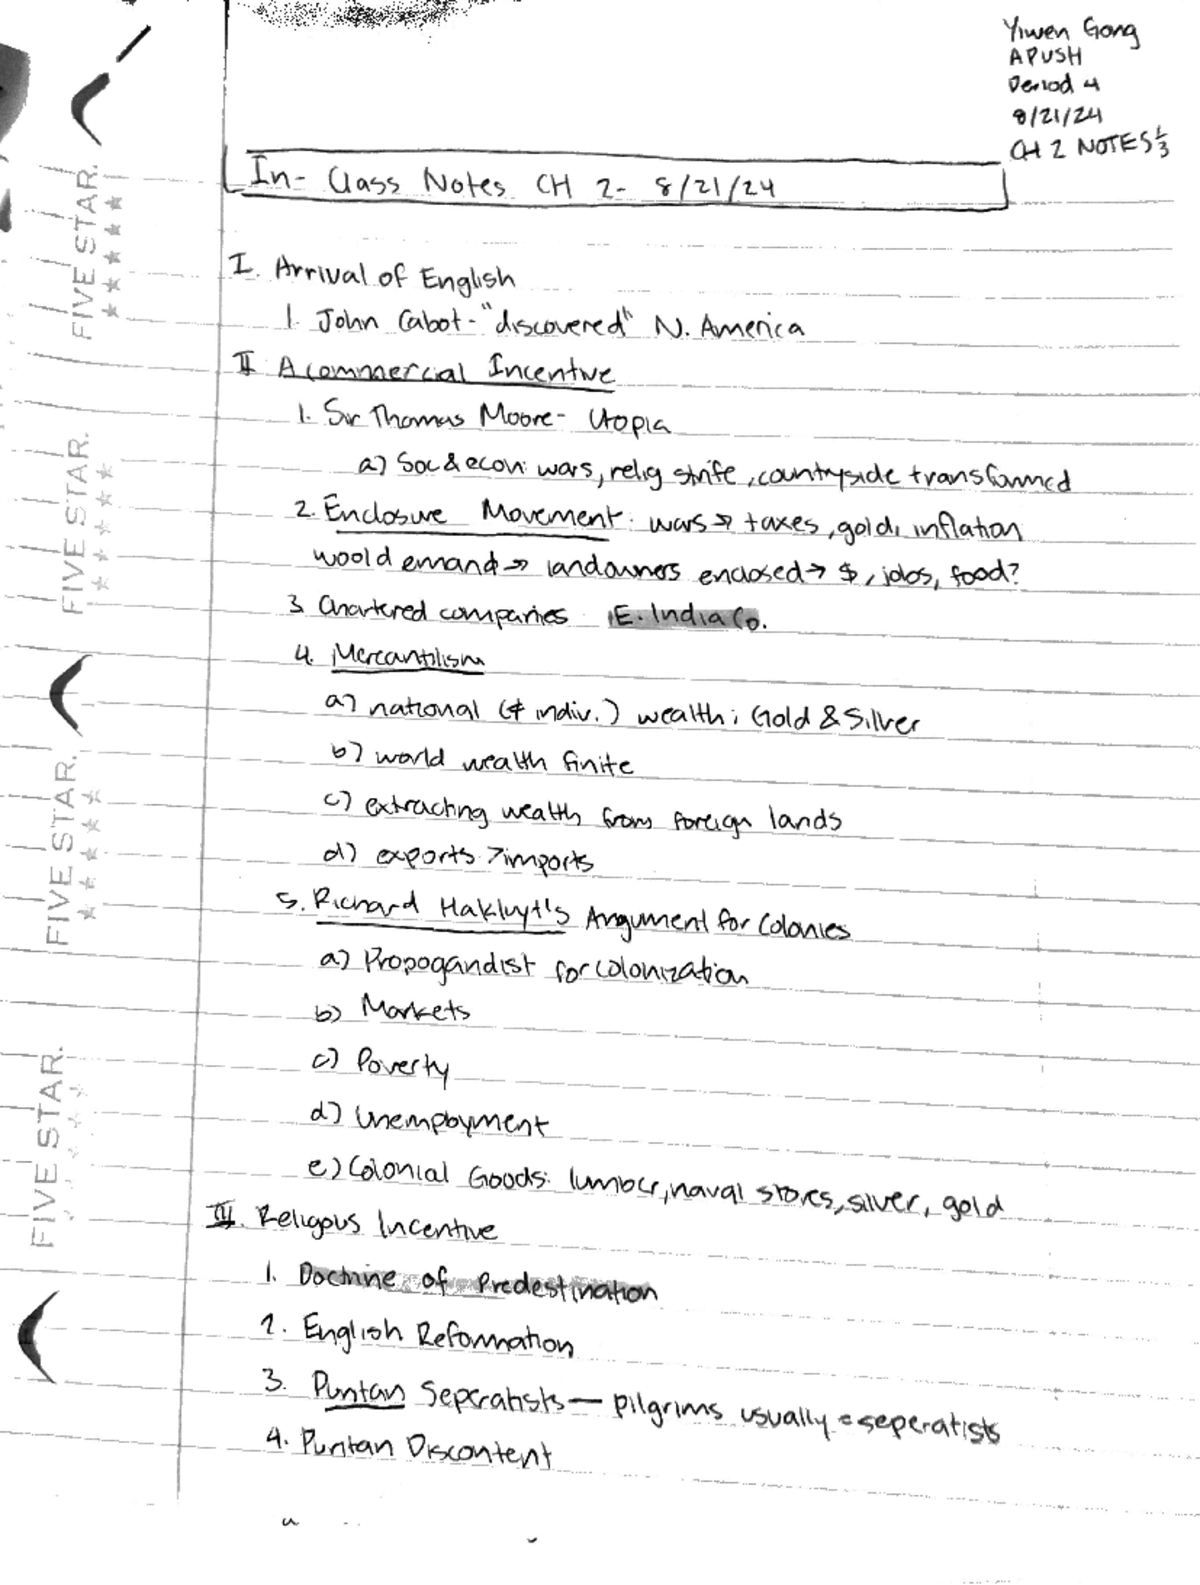 Yiwen Gong
APUSH
Period 4
8/21/24
CH 2 NOTES 1/3
In-Class Notes CH 2- 8/21/24
I. Arrival of English
1. John Cabot- "discovered" N. America
II A Commercial Incentive
1. Sir Thomas Moore- Utopia
a) Soc & econ: wars, relig strife, countryside transformed
2. Enclosure Movement: wars → taxes, gold, inflation
wool demand → landowners enclosed → $, jobs, food?
3. Chartered companies E. India Co.
4. Mercantilism
a) national (≠ indiv.) wealth; Gold & Silver
b) world wealth finite
c) extracting wealth from foreign lands
d) exports > imports
5. Richard Hakluyt's Argument for Colonies
a) Propogandist for colonization
b) Markets
c) Poverty
d) Unemployment
e) Colonial Goods: lumber, naval stores, silver, gold
III. Religous Incentive
1. Doctrine of Predestination
2. English Reformation
3. Puritan Seperatists — pilgrims usually = seperatists
4. Puritan Discontent
FIVE STAR.
FIVE STAR.
FIVE STAR.
FIVE STAR.